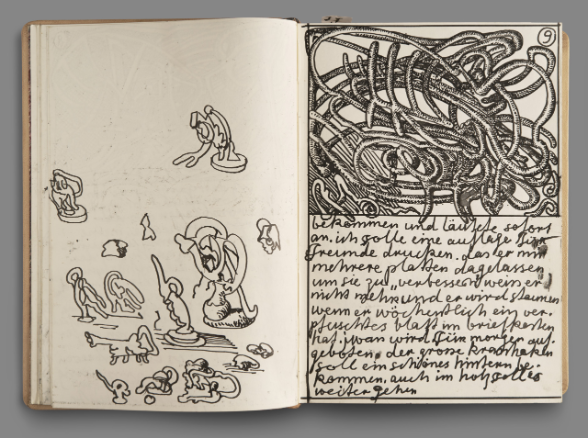 9
bekommen und läutete sofort
an. ich solle eine auflage für
freunde drucken. das er mir
mehrere platten dagelassen
um sie zu „verbessern" wenn er
nicht mehr und er wird staunen
wenn er wöchentlich ein ver-
pfuschtes blatt im briefkasten
hat. iwan wird für morgen auf-
geboten, der grosse
soll ein schönes hintern be-
kommen. auch im holz solle es
weiter gehen